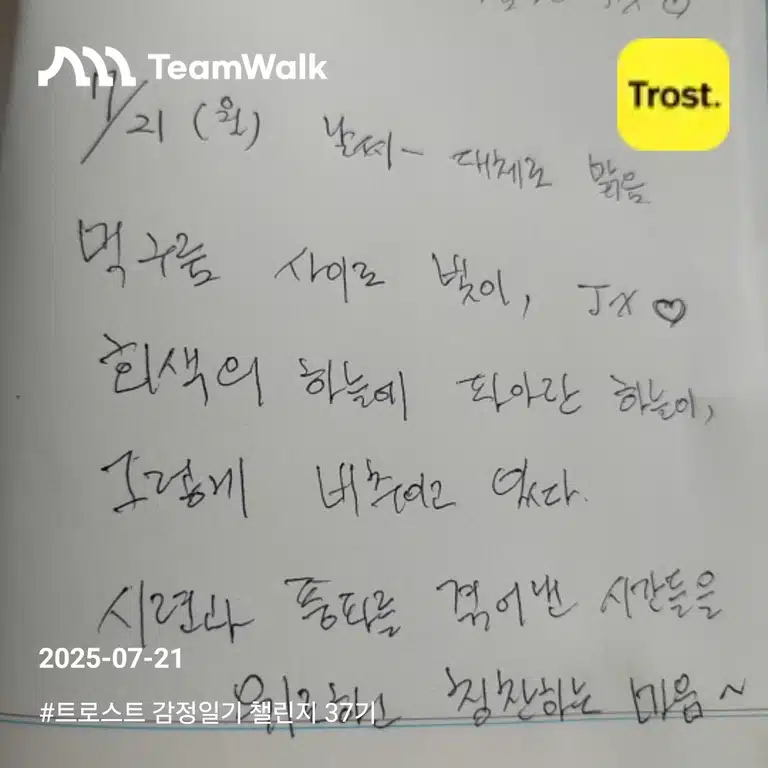 TeamWalk
Trost.
7/21 (월) 날씨- 대체로 맑음
먹구름 사이로 빛이, Jx♡
회색의 하늘에 파아란 하늘이,
그렇게 비추이고 있다.
시련과 풍파를 겪어낸 시간들을
2025-07-21
칭찬하는 마음~
#트로스트 감정일기 챌린지 37기